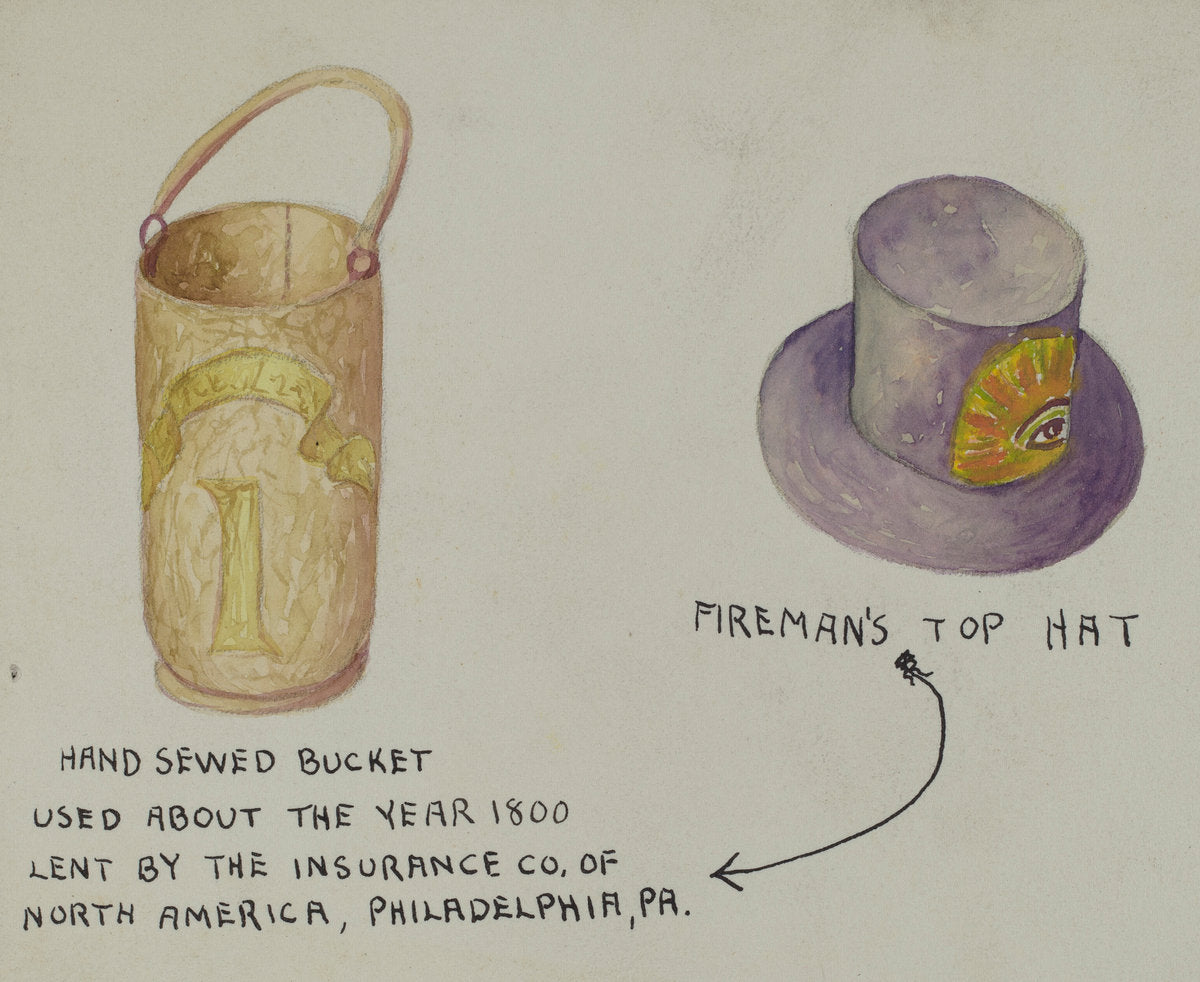 1
HAND SEWED BUCKET
USED ABOUT THE YEAR 1800
LENT BY THE INSURANCE CO. OF
NORTH AMERICA, PHILADELPHIA, PA.
FIREMAN'S TOP HAT